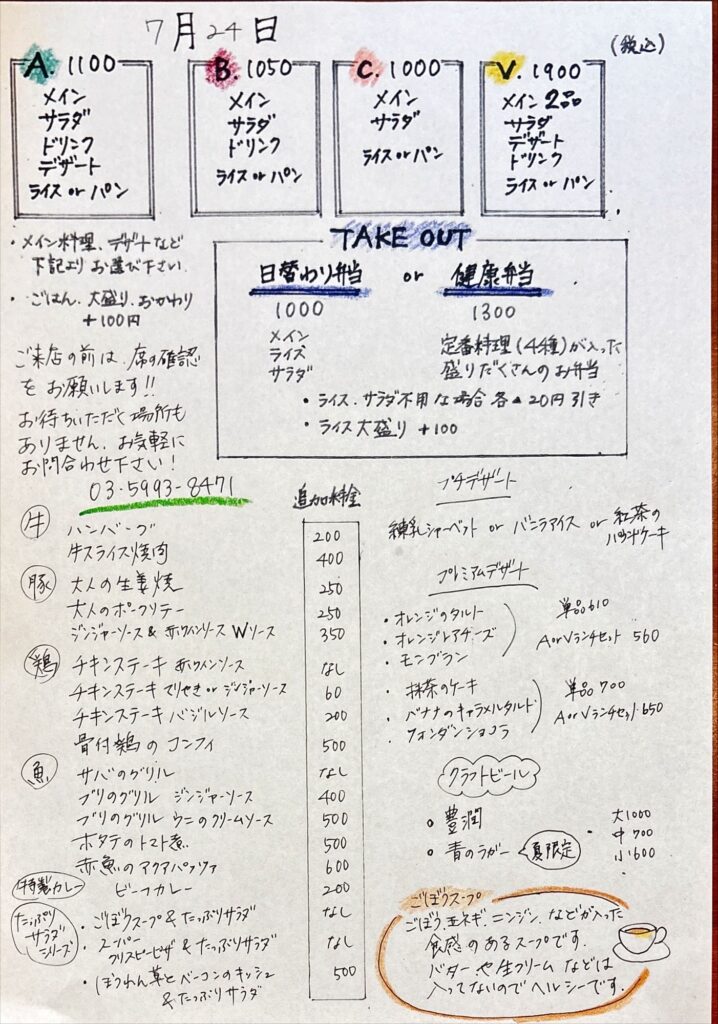 7月24日
(税込)
A. 1100
メイン
サラダ
ドリンク
デザート
ライス or パン
B. 1050
メイン
サラダ
ドリンク
ライス or パン
C. 1000
メイン
サラダ
ライス or パン
V. 1900
メイン 2品
サラダ
デザート
ドリンク
ライス or パン
・メイン料理、デザートなど
下記よりお選び下さい
・ごはん、大盛り、おかわり
+100円
ご来店の前は、席の確認
をお願いします!!
お待ちいただく場所も
ありません、お気軽に
お問合わせ下さい!
03-5993-8471
TAKE OUT
日替わり弁当 or 健康弁当
1000
メイン
ライス
サラダ
1300
定番料理(4種)が入った
盛りだくさんのお弁当
・ライス、サラダ不用な場合 各▲20円引き
・ライス大盛り +100
追加料金
牛
ハンバーグ 200
牛スライス焼肉 400
豚
大人の生姜焼 250
大人のポークソテー 250
ジンジャーソース & 赤ワインソース Wソース 350
鶏
チキンステーキ 赤ワインソース なし
チキンステーキ てりやき or ジンジャーソース 60
チキンステーキ バジルソース 200
骨付鶏のコンフィ 500
魚
サバのグリル なし
ブリのグリル ジンジャーソース 400
ブリのグリル ウニのクリームソース 500
ホタテのトマト煮 500
赤魚のアクアパッツァ 600
特製カレー
ビーフカレー 200
たっぷり
サラダ
シリーズ
・ごぼうスープ & たっぷりサラダ なし
・スーパー
クリスピーピザ & たっぷりサラダ なし
・ほうれん草とベーコンのキッシュ
& たっぷりサラダ 500
プチデザート
練乳シャーベット or バニラアイス or 紅茶の
パウンドケーキ
プレミアムデザート
・オレンジのタルト
・オレンジレアチーズ
・モンブラン
単品 610
A or V ランチセット 560
・抹茶のケーキ
・バナナのキャラメルタルト
・フォンダンショコラ
単品 700
A or V ランチセット 650
クラフトビール
・豊潤
・青のラガー 夏限定
・大1000
中 700
小 600
ごぼうスープ
ごぼう、玉ネギ、ニンジン、などが入った
食感のあるスープです.
バターや生クリームなどは
入ってないのでヘルシーです.